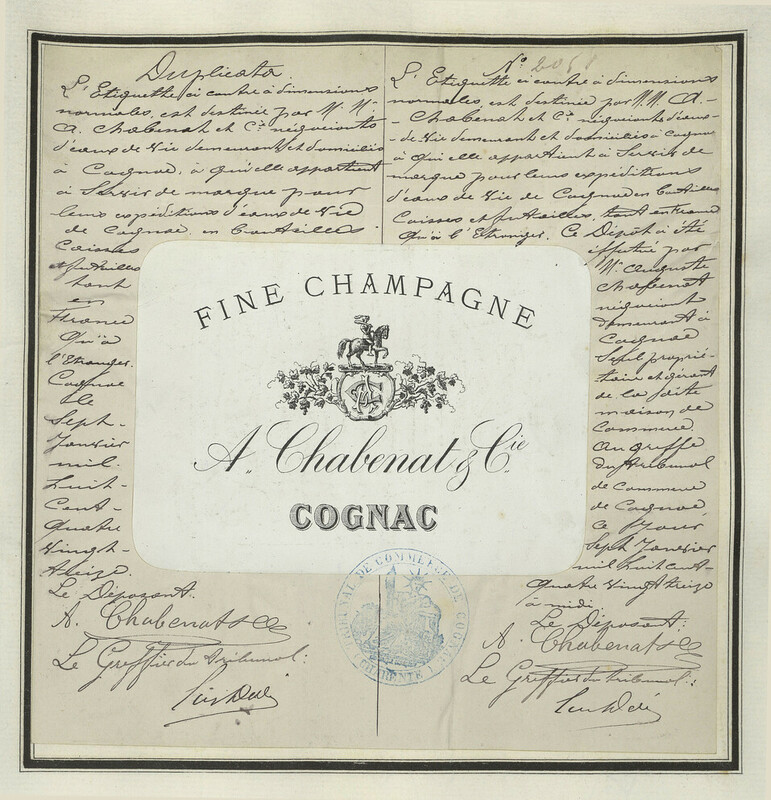 Duplicata.
L'Etiquette ci contre à dimensions
normales, est destinée par M. M.
A. Chabenat et Cie négociants
d'eaux de Vie demeurant et domiciliés
à Cognac, à qui elle appartient
à Servir de marque pour
leurs expéditions d'eaux de Vie
de Cognac en Bouteilles
Caisses
et futailles
tant
en
France
qu'à
l'Etranger.
Cognac
le
Sept-
Janvier
mil-
huit-
Cent-
Quatre
Vingt-
treize.
Le Déposant.
A. Chabenat & Co
Le Greffier du tribunal:
No. 2051
L'Etiquette ci contre à dimensions
normales, est destinée par M. M. A. -
- Chabenat et Cie négociants d'eaux-
- de Vie demeurant et domiciliés à Cognac
à qui elle appartient à Servir de
marque pour leurs expéditions
d'eaux de Vie de Cognac en Bouteilles
Caisses et futailles, tant en France
qu'à l'Etranger. Ce Dépôt a été
effectué par
Mr. Auguste
Chabenat
négociant
demeurant à
Cognac
Seul proprié-
taire et gérant
de la dite
maison de
Commerce
au greffe
du tribunal
de Commerce
de Cognac
ce jour
Sept Janvier
mil huit cent-
quatre vingt treize
à midi.
Le Déposant:
A. Chabenat & Co
Le Greffier du tribunal:
FINE CHAMPAGNE
A. Chabenat & Cie
COGNAC
TRIBUNAL DE COMMERCE DE COGNAC
CHARENTE